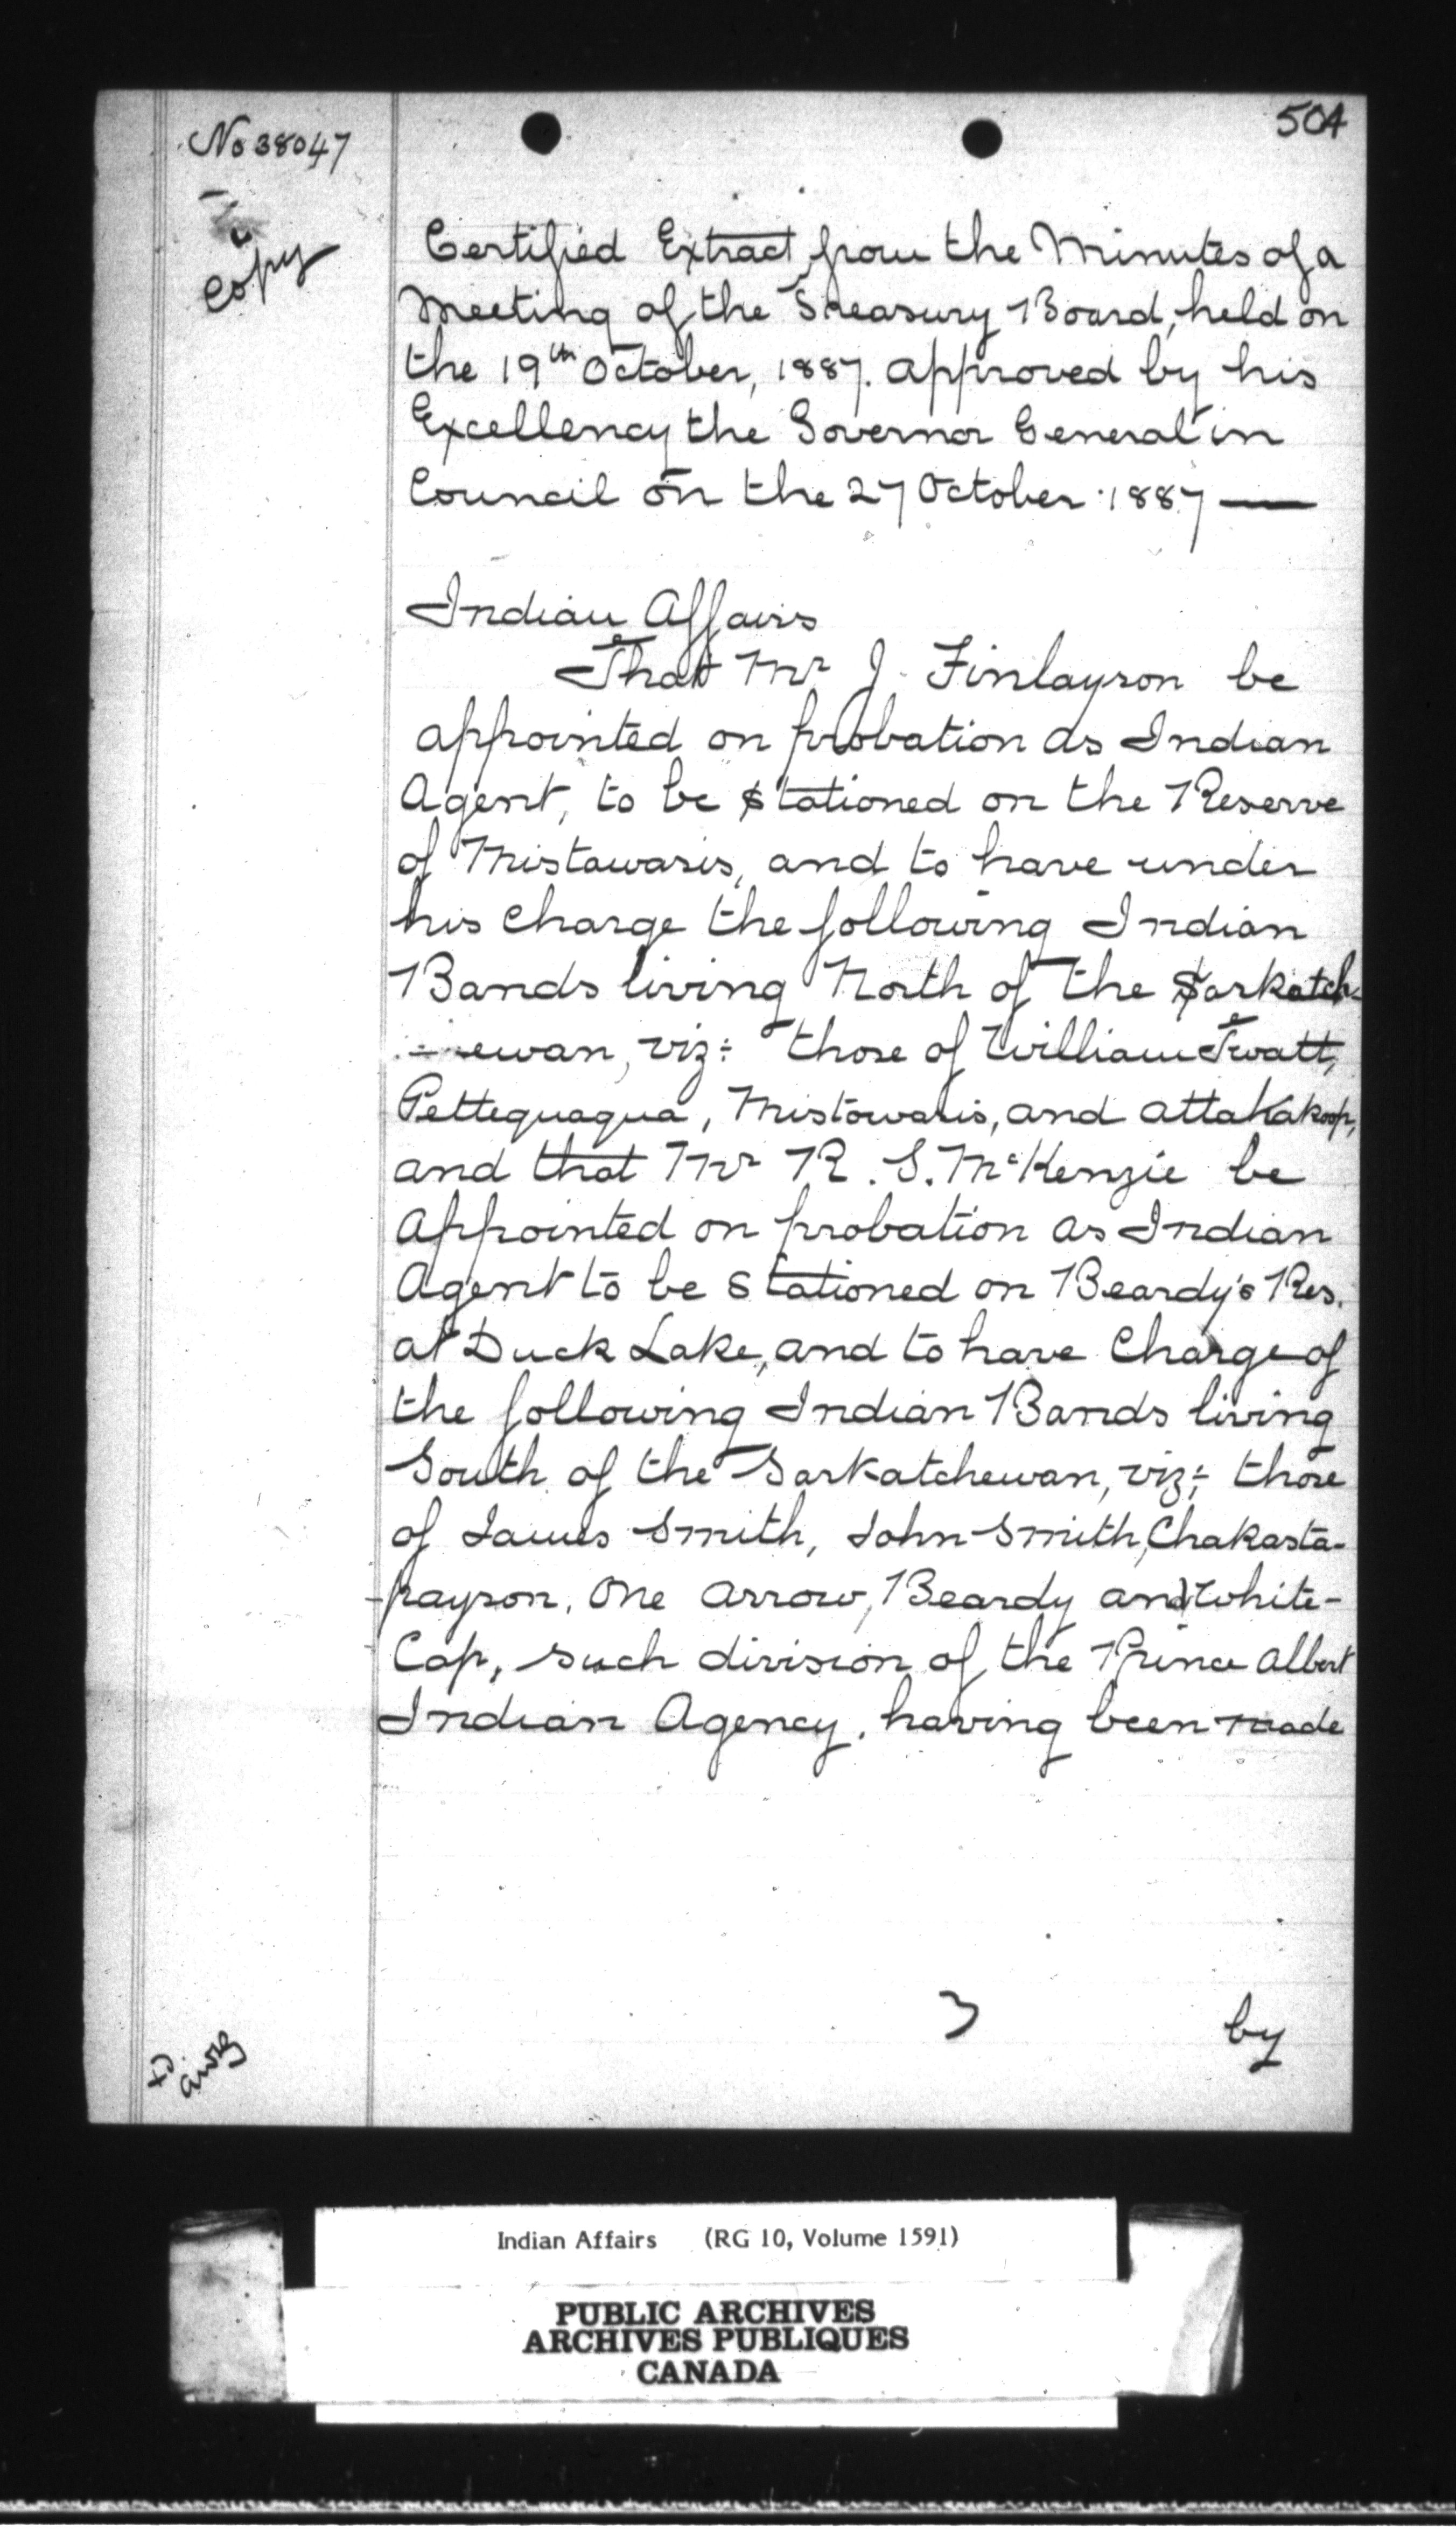 504
No 38047
Copy
Certified Extract from the Minutes of a
Meeting of the Treasury Board, held on
the 19th October, 1887. approved by his
Excellency the Governor General in
Council on the 27 October 1887 —
Indian Affairs
That Mr J. Finlayson be
appointed on probation as Indian
Agent, to be stationed on the Reserve
of Mistawasis, and to have under
his charge the following Indian
Bands living North of the Saskatch-
-ewan, viz:- those of William Twatt,
Pettequaqua, Mistowasis, and Attakakoop,
and that Mr R. S. McKenzie be
Appointed on probation as Indian
Agent to be stationed on Beardy's Res.
at Duck Lake, and to have Charge of
the following Indian Bands living
South of the Saskatchewan, viz:- those
of James Smith, John Smith, Chakasta-
-payson, One Arrow, Beardy and White-
Cap, such division of the Prince Albert
Indian Agency, having been made
by
Indian Affairs (RG 10, Volume 1591)
PUBLIC ARCHIVES
ARCHIVES PUBLIQUES
CANADA